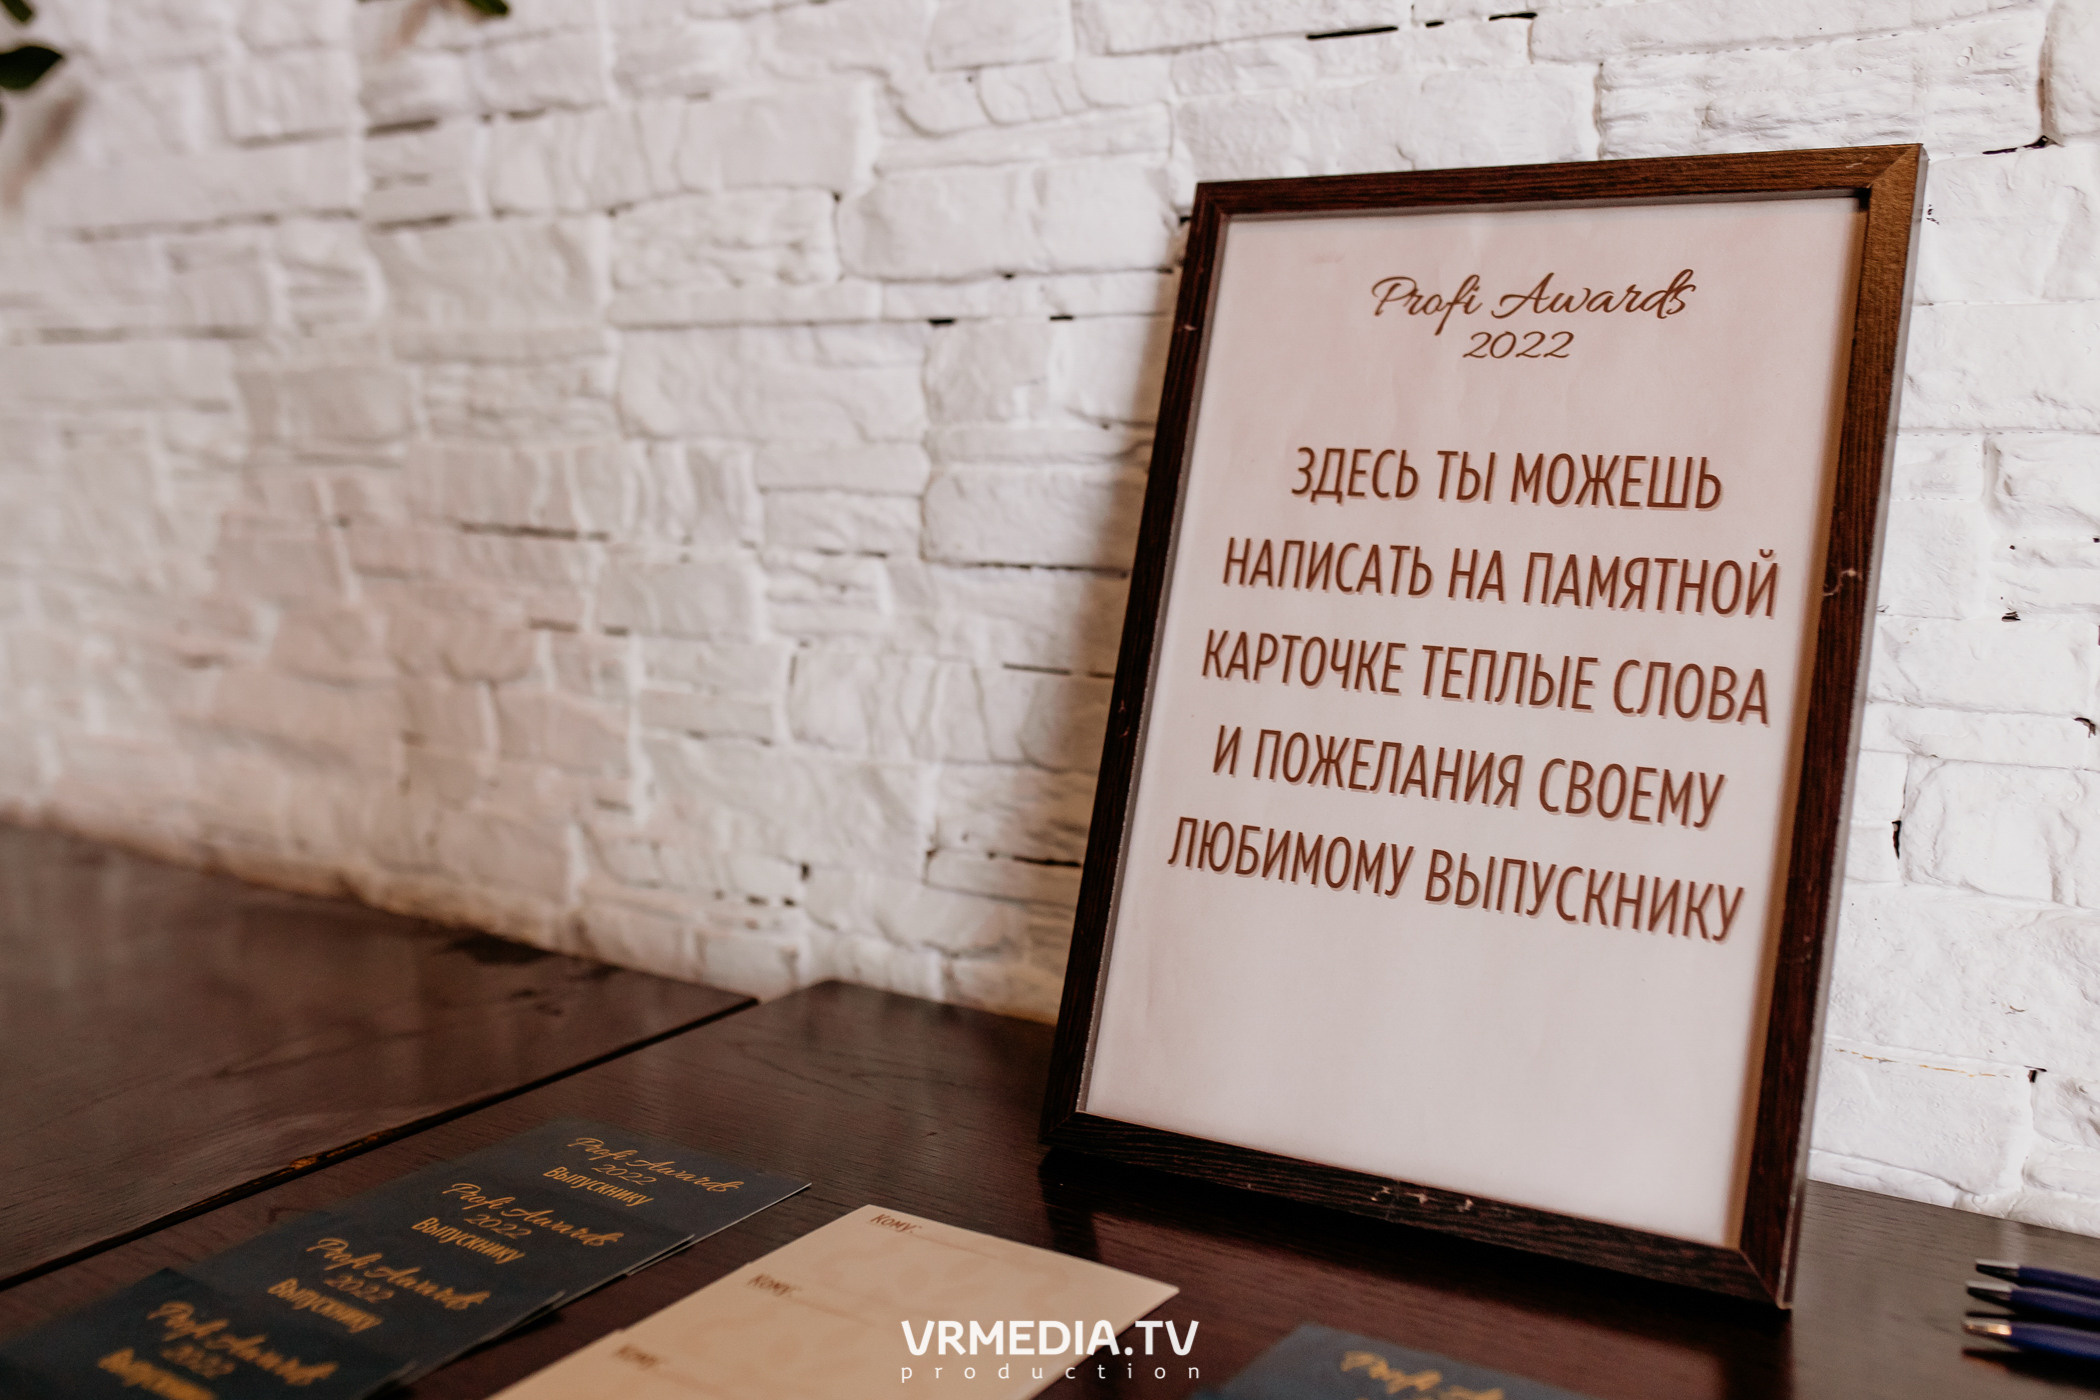 Profi Awards
2022
ЗДЕСЬ ТЫ МОЖЕШЬ
НАПИСАТЬ НА ПАМЯТНОЙ
КАРТОЧКЕ ТЕПЛЫЕ СЛОВА
И ПОЖЕЛАНИЯ СВОЕМУ
ЛЮБИМОМУ ВЫПУСКНИКУ
Profi Awards
2022
Выпускнику
Profi Awards
2022
Выпускнику
Profi Awards
2022
Выпускнику
Profi Awards
2022
Выпускнику
Кому:
Кому:
Кому:
Profi
VRMEDIA.TV
production